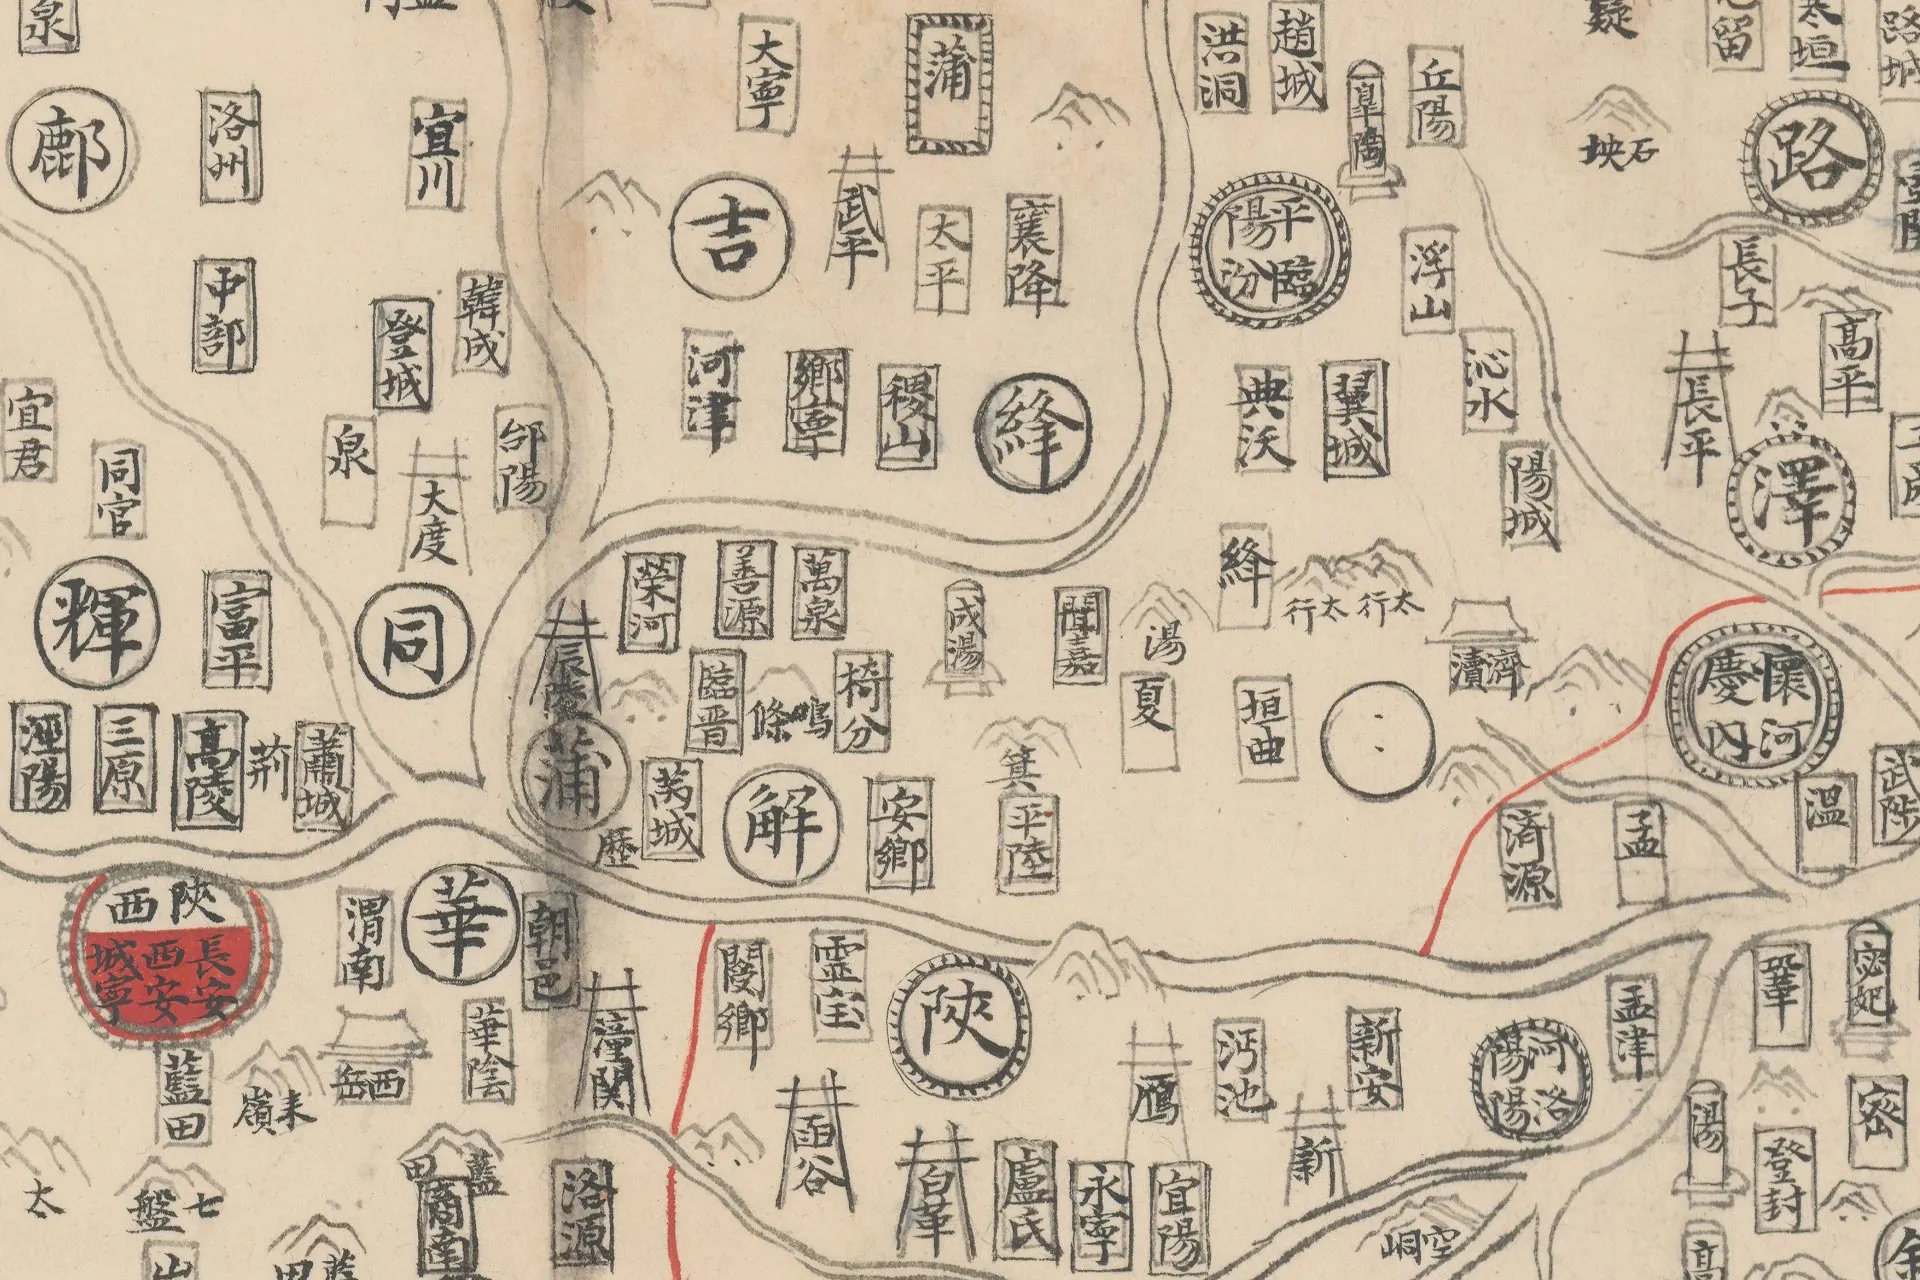 泉
大寧
蒲
洪洞
趙城
皐陶
丘陽
疑
路城
鄜
洛州
宜川
石坱
路
吉
武平
太平
襄降
平陽
臨汾
浮山
長子
中部
登城
韓成
河津
鄉寧
稷山
絳
典沃
翼城
沁水
長平
高平
宜君
同官
泉
大度
郃陽
陽城
澤
輝
富平
同
榮河
善源
萬泉
成湯
聞喜
湯
夏
絳
太行
太行
濟瀆
懷慶
河內
辰陵
臨晋
鳴條
猗分
垣曲
涇陽
三原
高陵
荊
蕭城
蒲
芮城
歷
解
安鄉
箕
平陸
済源
孟
溫
武陟
陝西
長安
西安
城寧
渭南
華
朝邑
閿鄉
霊宝
陝
孟津
鞏
宓妃
藍田
西岳
華陰
潼関
雁
沔池
新安
河洛
陽陽
密
太
七盤
藍田
商南
洛源
函谷
白華
盧氏
永寧
宜陽
新
空峒
湯
登封